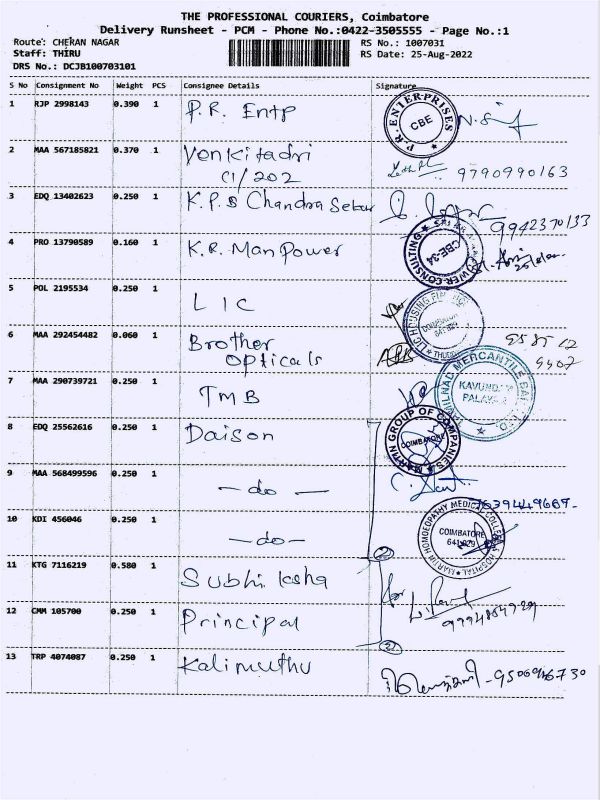 THE PROFESSIONAL COURIERS, Coimbatore
Delivery Runsheet - PCM - Phone No.:0422-3505555 - Page No.:1
Route: CHERAN NAGAR RS No.: 1007031
Staff: THIRU RS Date: 25-Aug-2022
DRS No.: DCJB100703101
S No Consignment No Weight PCS Consignee Details Signature
1 RJP 2998143 0.390 1 P.R. Entp
P.R. ENTERPRISES CBE
2 MAA 567185821 0.370 1 Venkitadri
C1/202 9790990163
3 EDQ 13402623 0.250 1 K.P.S Chandra Sekar
9942370133
4 PRO 13790589 0.160 1 K.R. Man Power
CBE-34
5 POL 2195534 0.250 1 LIC
LIC HOUSING COIMBATORE
6 MAA 292454482 0.060 1 Brother
Opticals
7 MAA 290739721 0.250 1 TMB
TAMILNAD MERCANTILE BANK LTD.
8 EDQ 25562616 0.250 1 Daison
MARTIN GROUP OF COMPANIES COIMBATORE
9 MAA 568499596 0.250 1 - do -
7639449669-
10 KDI 456046 0.250 1 - do -
MARTIN HOMOEOPATHY MEDICAL COLLEGE & HOSPITAL COIMBATORE
11 KTG 7116219 0.580 1 Subhiksha
for
12 CMM 105700 0.250 1 Principal
13 TRP 4074087 0.250 1 Kalimuthu